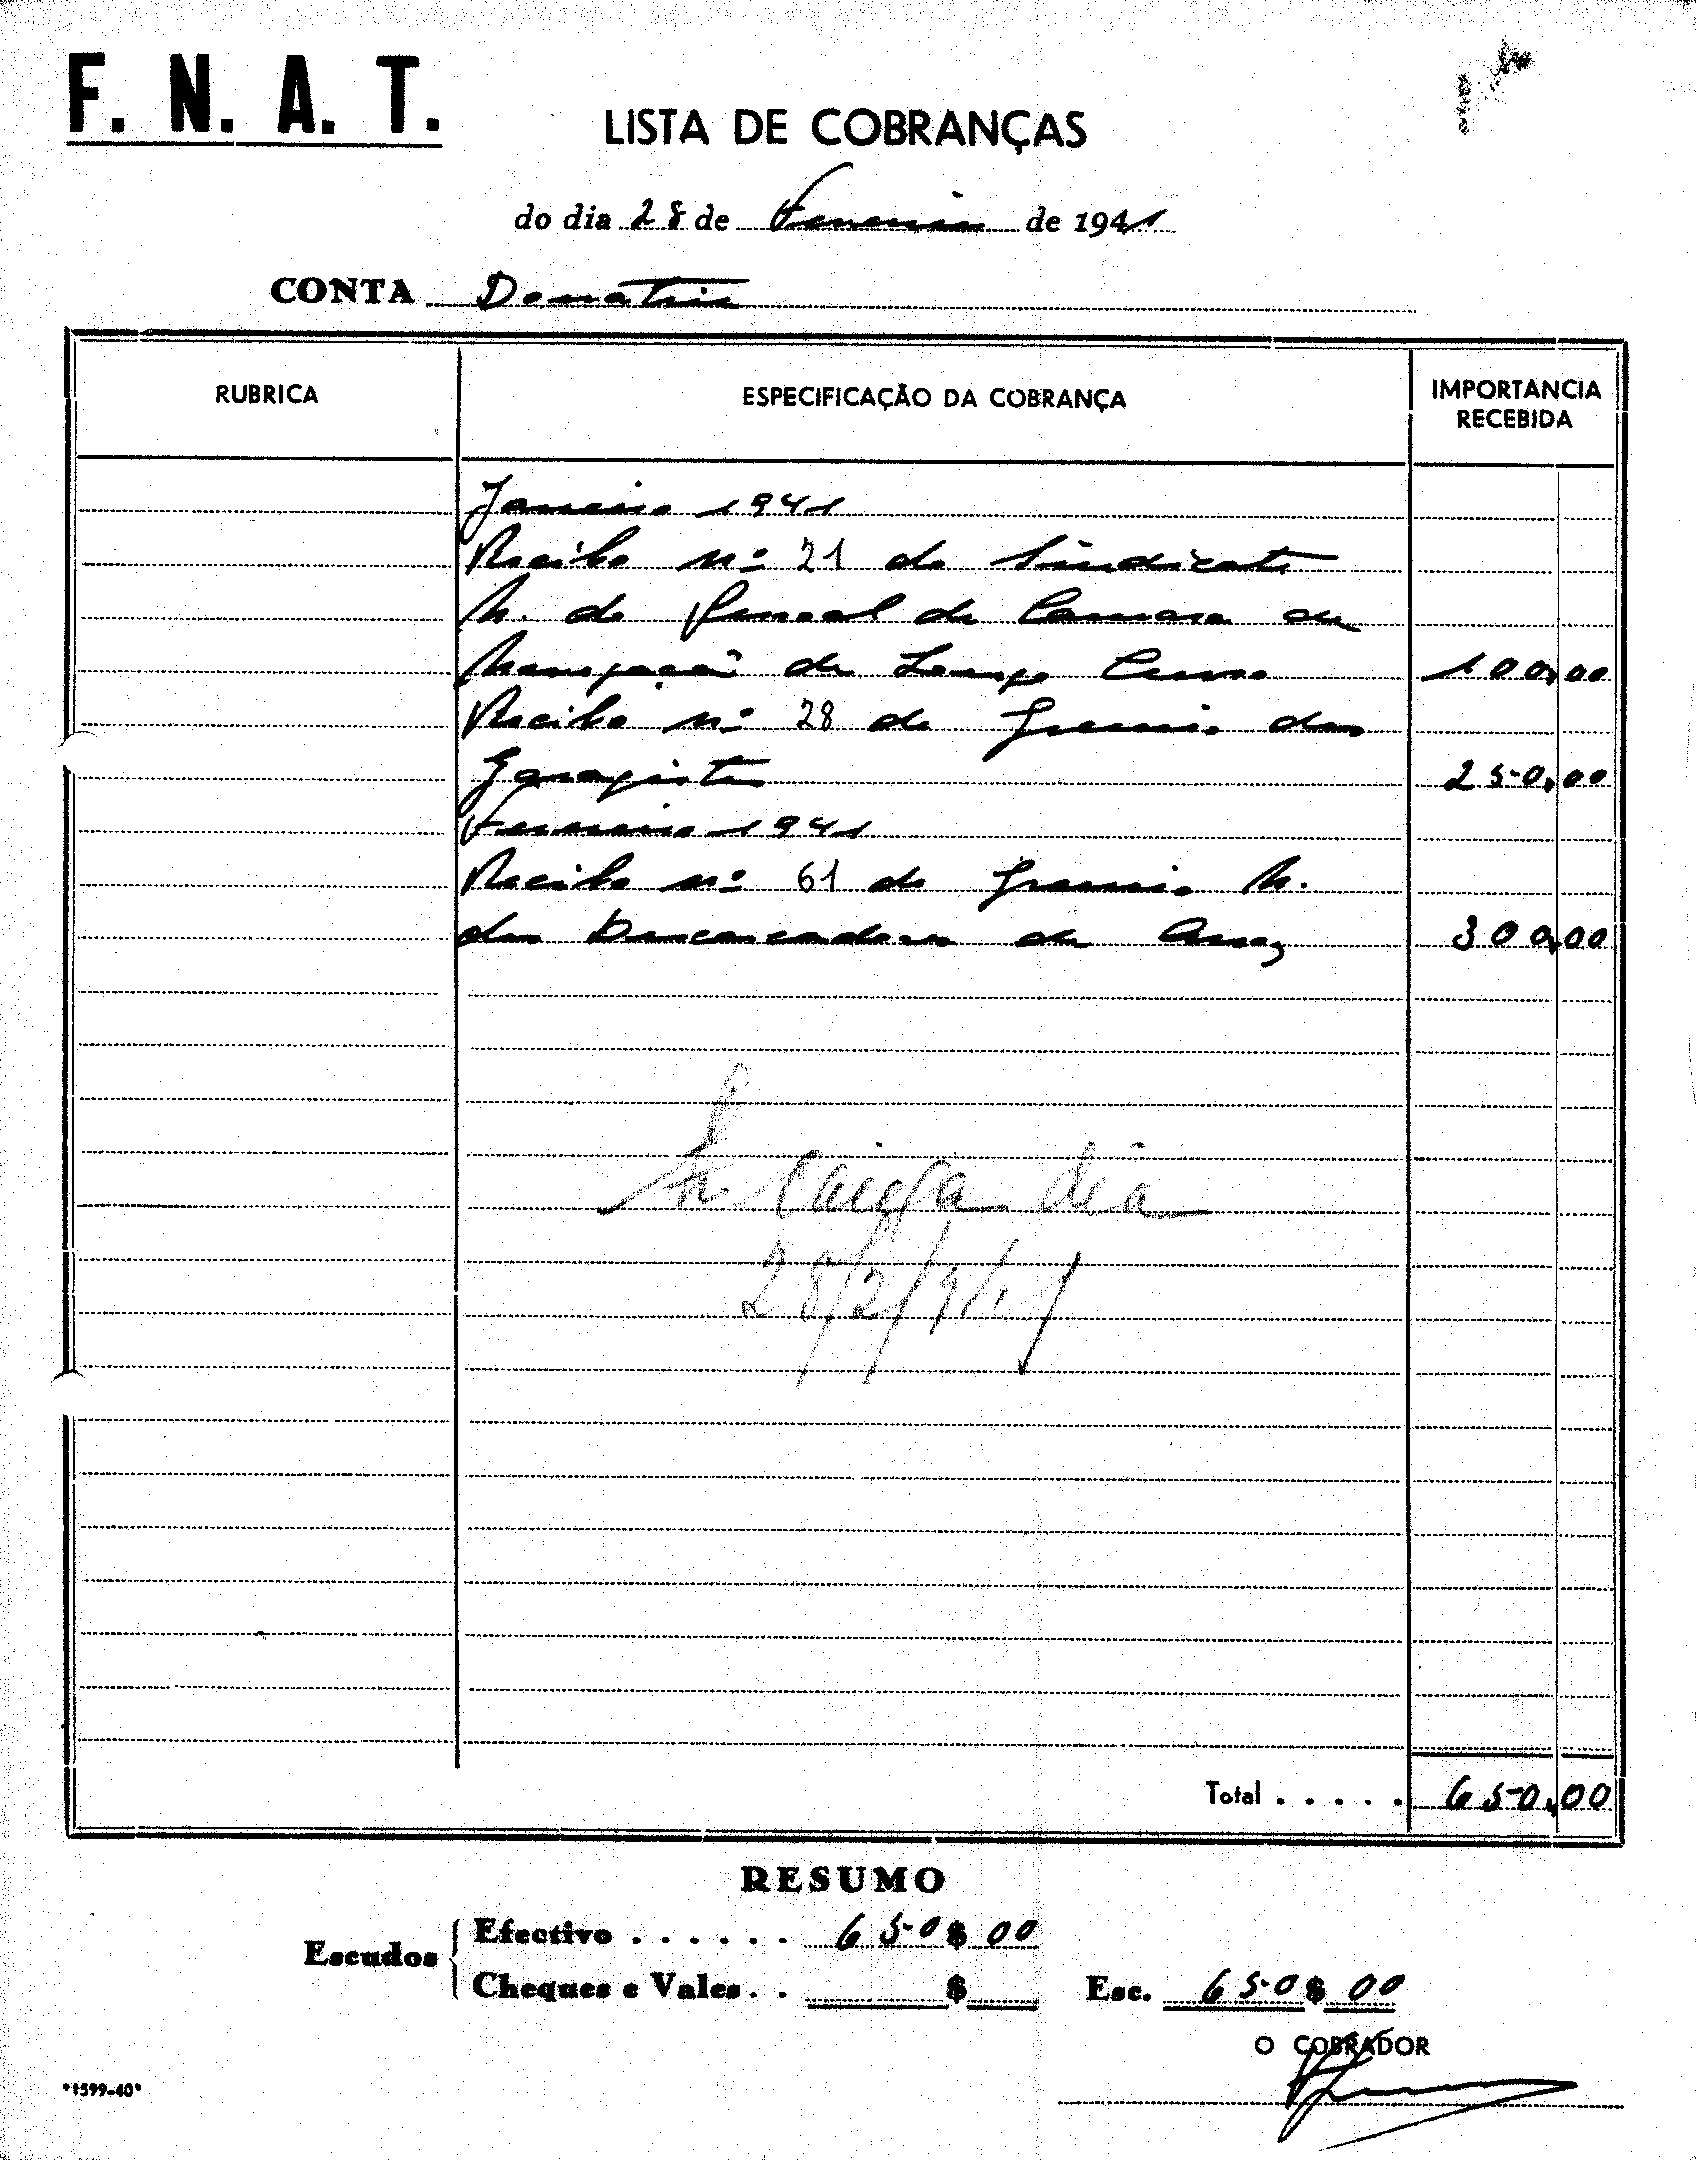 F. N. A. T.
LISTA DE COBRANÇAS
do dia 28 de Fevereiro de 1941
CONTA Donativos
RUBRICA ESPECIFICAÇÃO DA COBRANÇA IMPORTANCIA RECEBIDA
Janeiro 1941
Recibo nº 21 do Sindicato
N. do Pessoal de Camara da
Navegação de Longo Curso 100,00
Recibo nº 28 do Gremio dos
Garagistas 250,00
Fevereiro 1941
Recibo nº 61 do Gremio N.
dos Descascadores de Arroz 300,00
caixa dia
28/2/941
Total . . . . . 650,00
RESUMO
Escudos
Efectivo . . . . . . 650$00
Cheques e Vales . . $ Esc. 650$00
O COBRADOR
*1599-40*